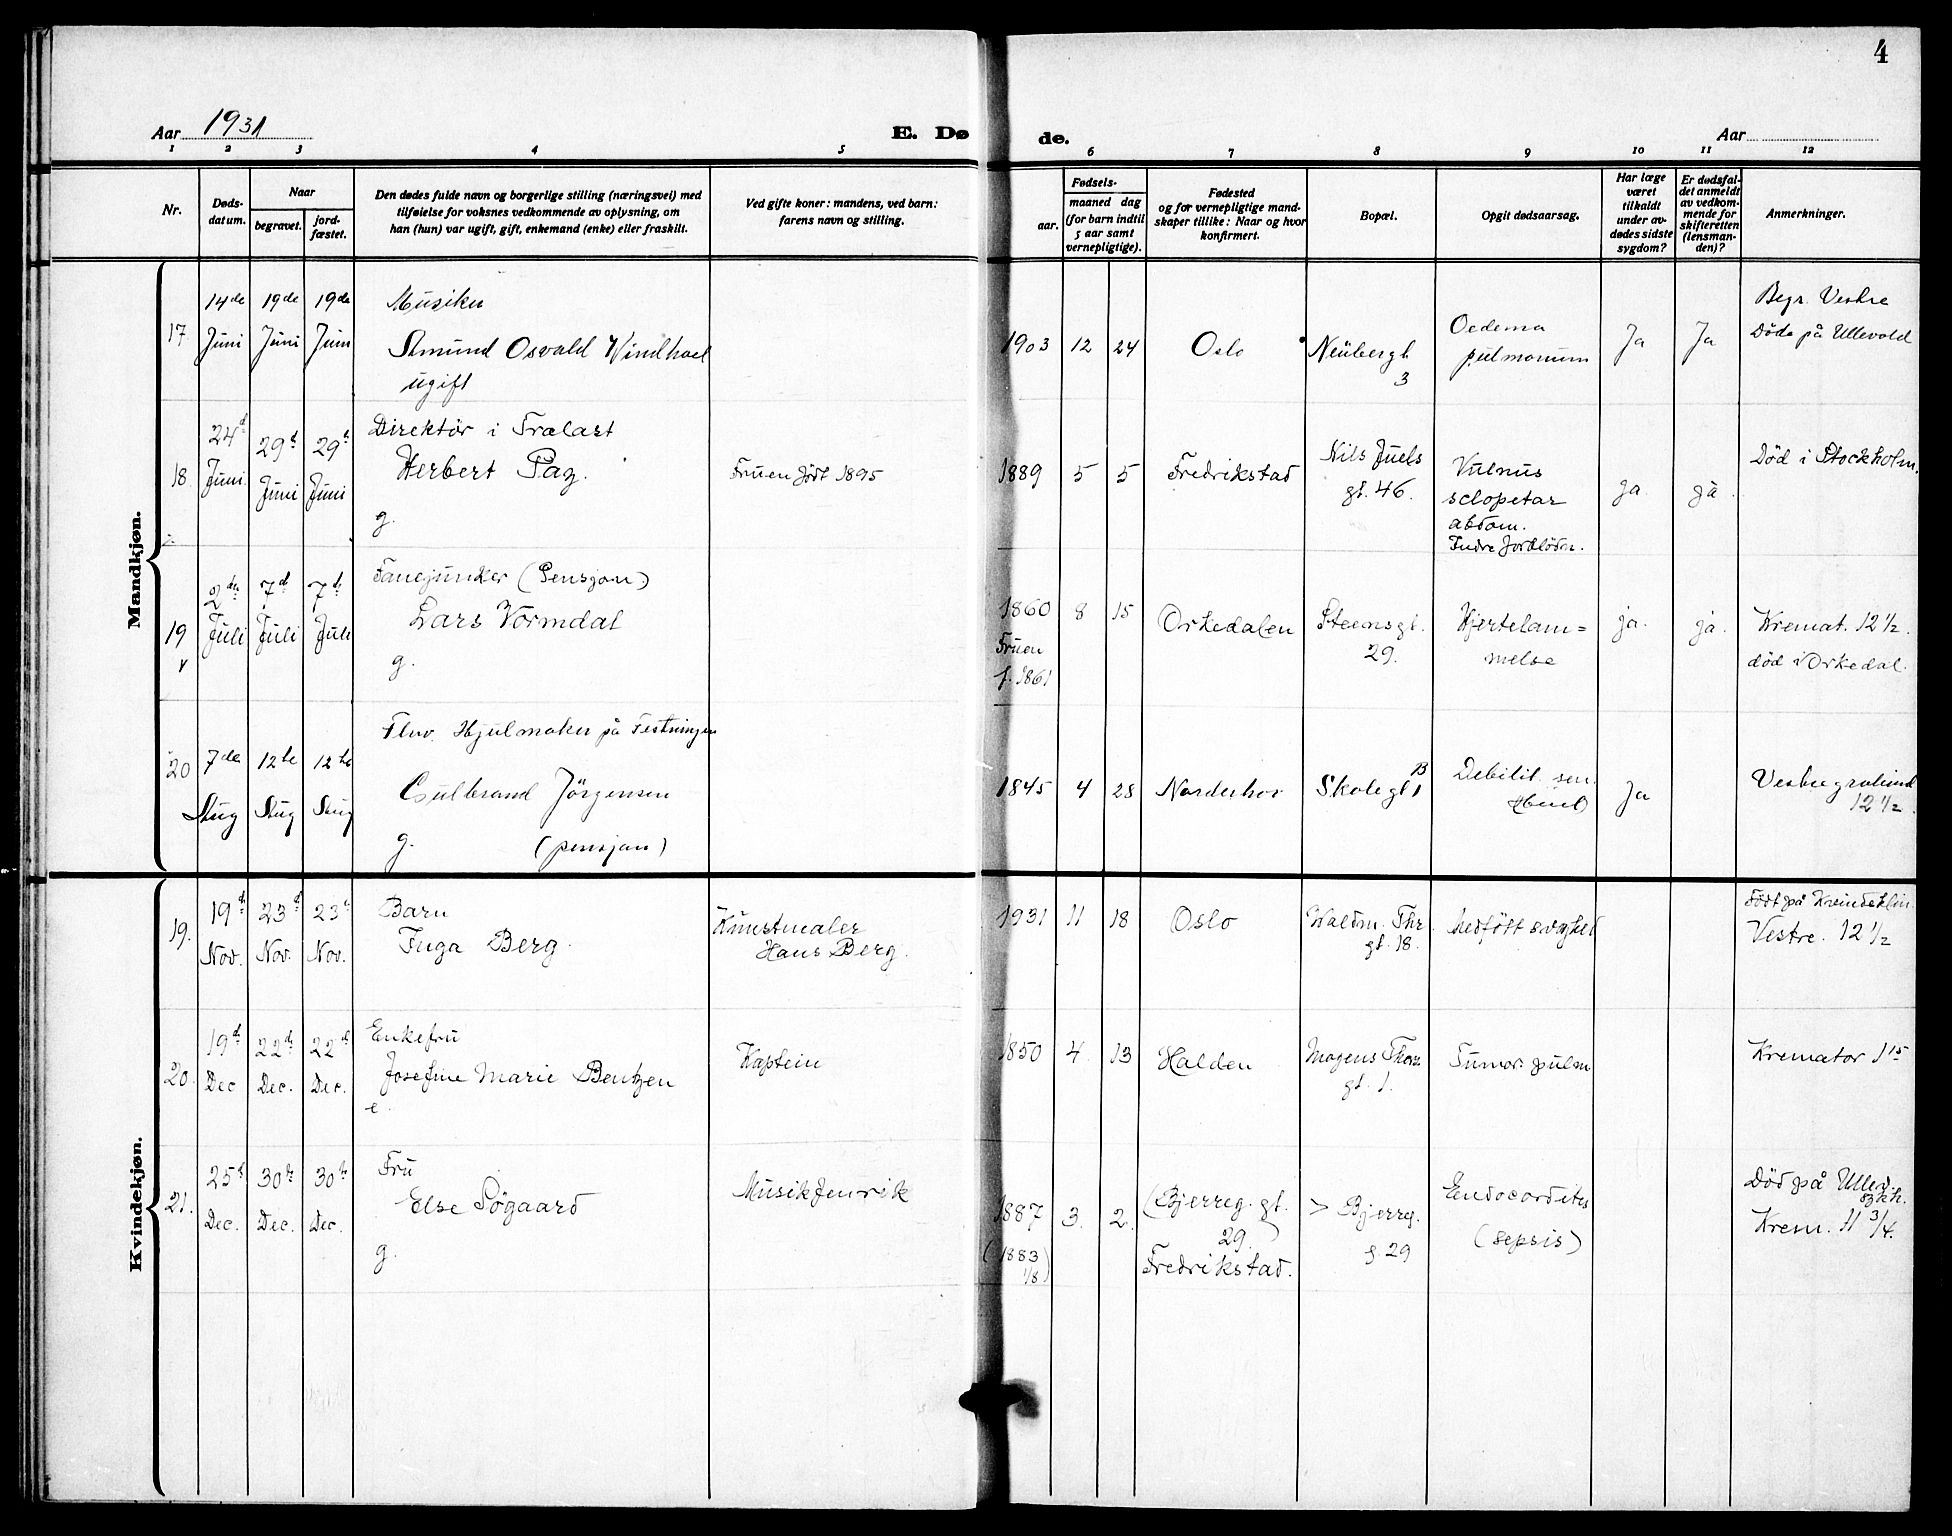 4
Aar 1931
E. Dø
de.
Aar
1 2 3 4 5 6 7 8 9 10 11 12
Nr.
Døds-
datum.
Naar
begravet.
jord-
fæstet.
Den dødes fulde navn og borgerlige stilling (næringsvei) med
tilføielse for voksnes vedkommende av oplysning, om
han (hun) var ugift, gift, enkemand (enke) eller fraskilt.
Ved gifte koner: mandens, ved barn:
farens navn og stilling.
Fødsels-
aar.
maaned dag
(for barn indtil
5 aar samt
vernepligtige).
Fødested
og for vernepligtige mand-
skaper tillike: Naar og hvor
konfirmert.
Bopæl.
Opgit dødsaarsag.
Har læge
været
tilkaldt
under av-
dødes sidste
sygdom?
Er dødsfal-
det anmeldt
av vedkom-
mende for
skifteretten
(lensman-
den)?
Anmerkninger.
Mandkjøn.
17
14de
Juni
19de
Juni
19de
Juni
Musiker
Amund Osvald
ugift
1903 12 24
Oslo
Neübergt
3
Oedema
pulmonum
Ja
Ja
Begr. Vestre
Døde på Ullevold
18
24d
Juni
29d
Juni
29d
Juni
Direktør i Trælast
Herbert Pag.
g.
Fruen født 1895
1889 5 5
Fredrikstad
Nils Juels
gt. 46.
Vulnus
sclopetar
abdom.
Indre
ja
ja
Død i Stockholm.
19
2de
Juli
7d
Juli
7d
Juli
Fanejunker (Pensjon)
Lars Vormdal
g.
1860
Fruen
f. 1861
8 15
Orkedalen
Steensgt.
29.
Hjertelam=
melse
ja.
ja.
Kremat. 12 ½.
død i Orkedal.
20
7de
Aug
12te
Aug
12te
Aug
Hjulmaker på Festningen
Gulbrand Jörgensen
g. (pensjon)
1845 4 28
Norderhov
Skolegt 1 B
Debilit. sen.
Ja
12 ½
Kvindekjøn.
19.
19d
Nov.
23d
Nov.
23d
Nov.
Barn
Inga Berg.
Kunstmaler
Hans Berg.
1931 11 18
Oslo
Waldm. Thr
gt. 18.
Medfött svaghet
Født på Kvindeklin.
Vestre. 12 ½
20.
19d
Dec
22d
Dec.
22d
Dec.
Enkefru
Josefine Marie Bentzen
e.
Kaptein
1850 4. 13
Halden
Mogens Thors
gt. 1.
Tumor. pulm
Kremator 1 15
21.
25d
Dec.
30te
Dec.
30te
Dec.
Fru
Else Sögaard
g.
Musikfenrik
1887 3. 2.
(1883
1/8)
(Bjerreg. gt.
29.)
Fredrikstad.
> Bjerreg.
g. 29
Endocarditis
(sepsis)
Død på Ullev.
sykh.
Krem. 11 3/4.